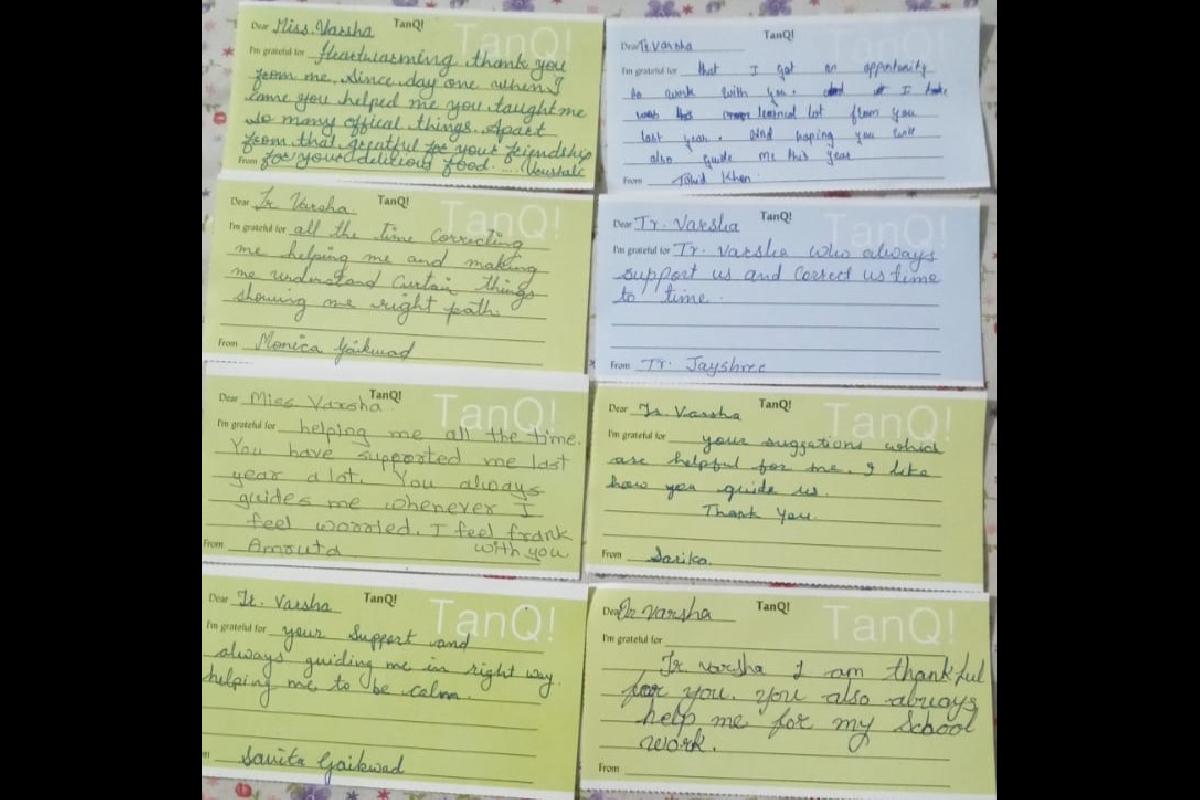 TanQ!
Dear Miss. Varsha
I'm grateful for Heartwarming thank you
from me. Since day one when I
came you helped me you taught me
so many offical things. Apart
from that greatful for your friendship
From for your delicious food. ...
TanQ!
TanQ!
Dear Tr. Varsha
I'm grateful for that I got an opportunity
to work with you. I
learned lot from you
last year. And hoping you will
also guide me this year
From Khan
TanQ!
TanQ!
Dear Tr. Varsha.
I'm grateful for all the time correcting
me helping me and making
me understand curtain things
showing me right path.
From Monica Gaikwad
TanQ!
TanQ!
Dear Tr. Varsha
I'm grateful for Tr. Varsha who always
support us and correct us time
to time.
From Tr. Jayshree
TanQ!
TanQ!
Dear Miss Varsha.
I'm grateful for helping me all the time.
You have supported me last
year a lot. You always
guides me whenever I
feel worried. I feel frank
with you
From Amruta
TanQ!
TanQ!
Dear Tr. Varsha
I'm grateful for your suggations which
are helpful for me. I like
how you guide us.
Thank You.
From Sarika.
TanQ!
TanQ!
Dear Tr. Varsha
I'm grateful for your support and
always guiding me in right way.
helping me to be calm.
Savita Gaikwad
TanQ!
TanQ!
Dear Tr Varsha
I'm grateful for
Tr Varsha I am thankful
for you. You also always
help me for my School
work.
From
TanQ!